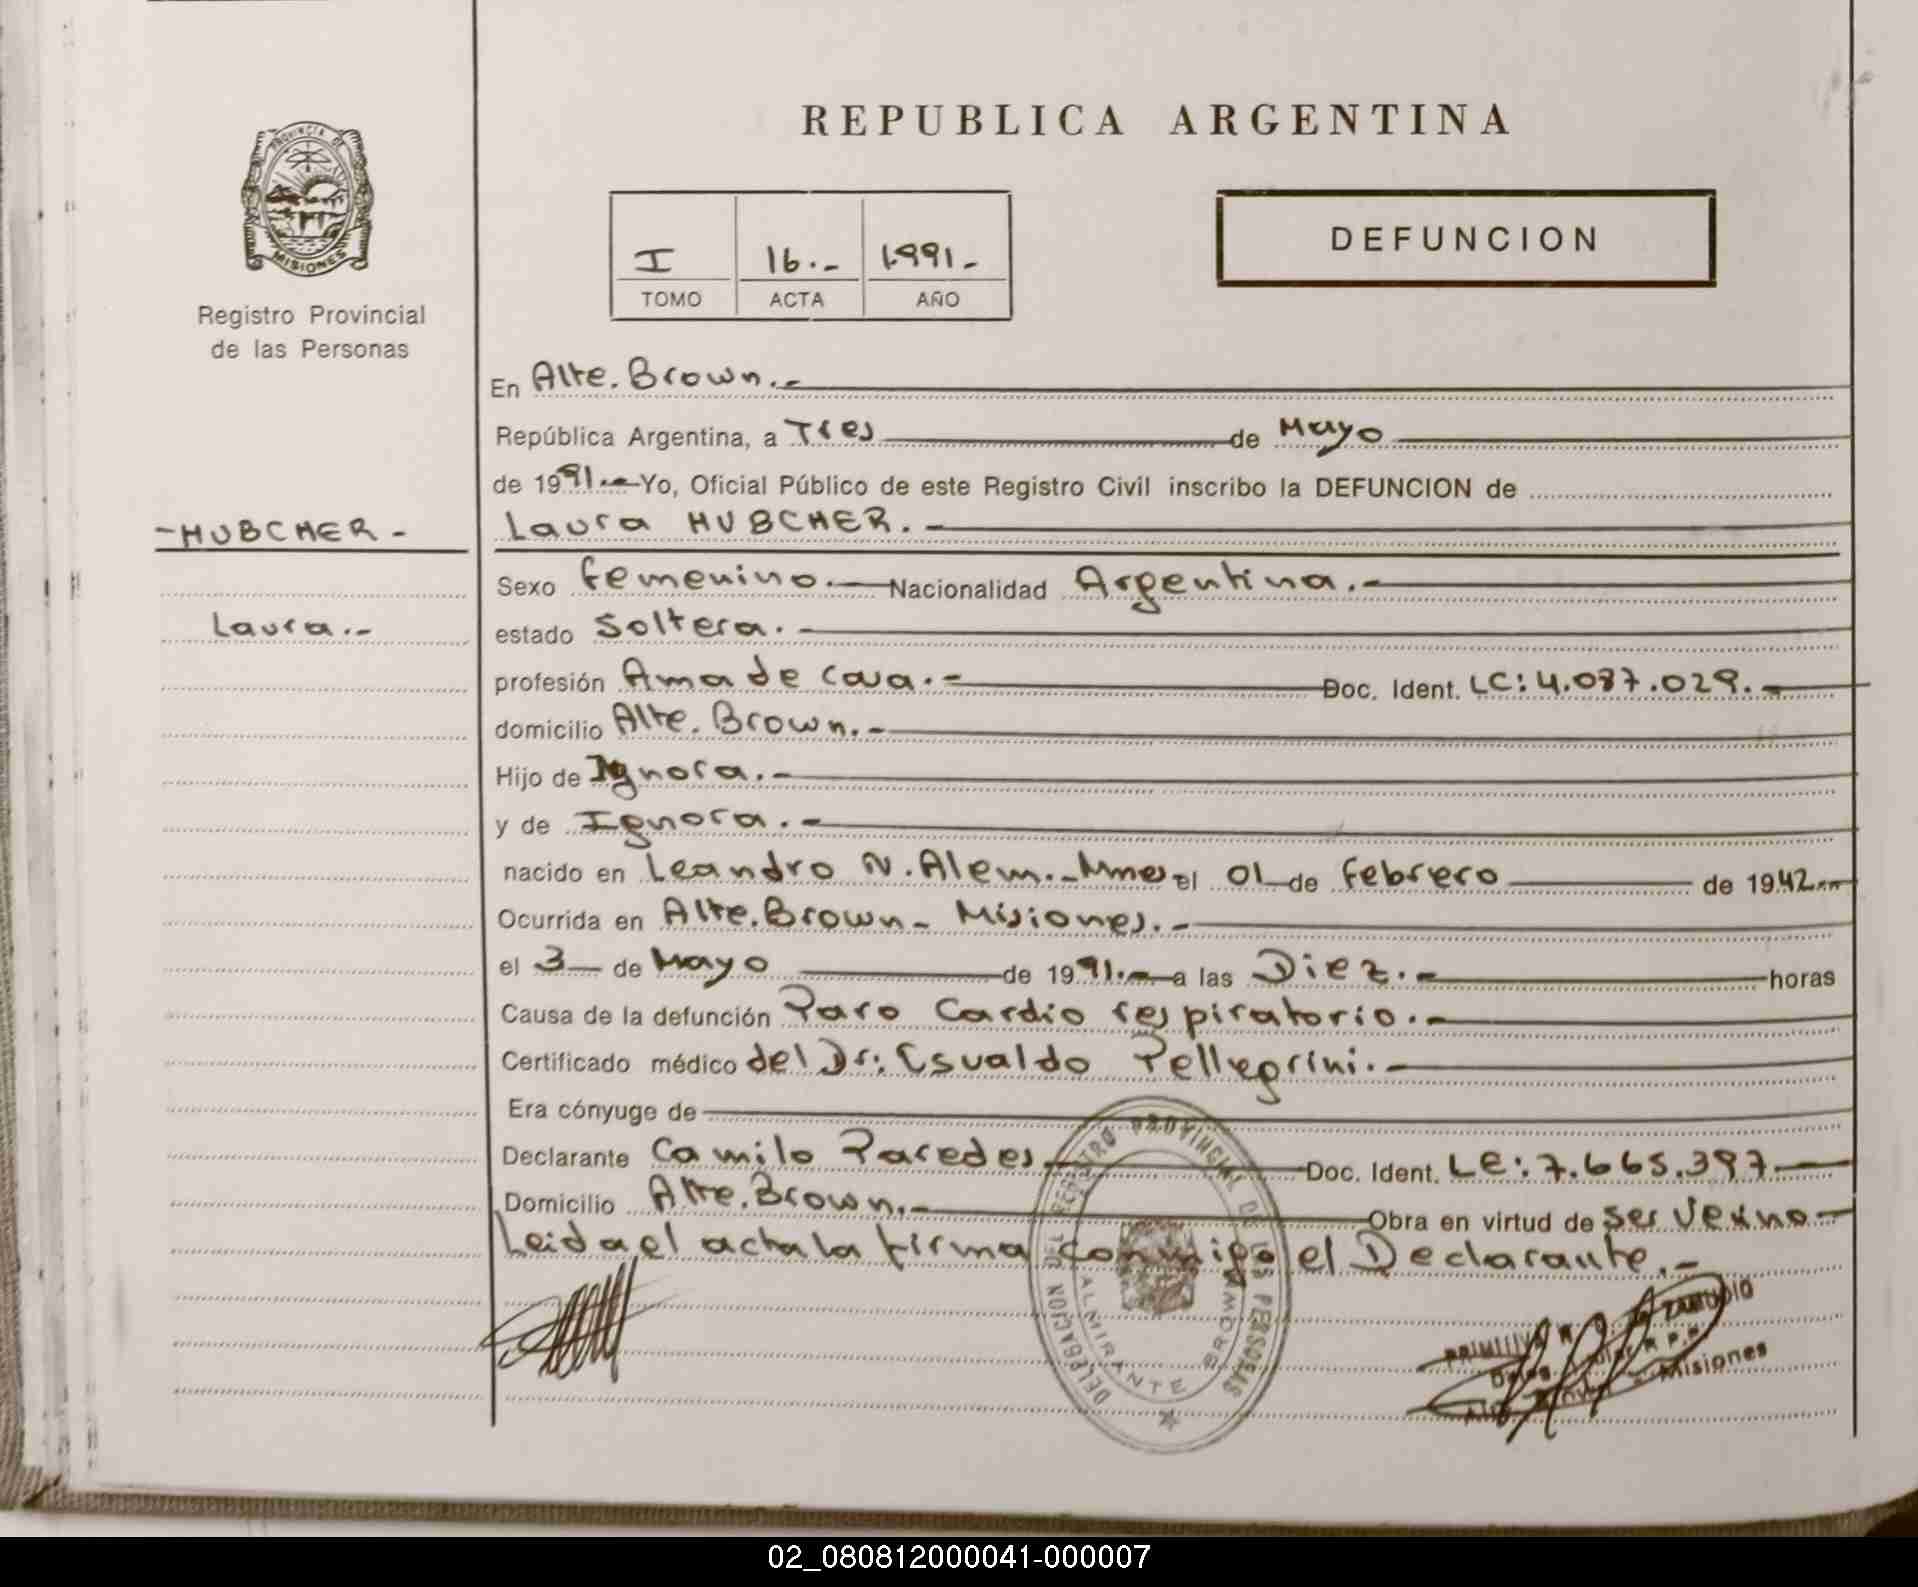 REPUBLICA ARGENTINA
PROVINCIA DE
MISIONES
Registro Provincial
de las Personas
I 16.- 1.991.-
TOMO ACTA AÑO
DEFUNCION
En Alte. Brown.-
República Argentina, a Tres de Mayo
de 1991.- Yo, Oficial Público de este Registro Civil inscribo la DEFUNCION de
- HUBCHER -
Laura HUBCHER.-
Sexo femenino.- Nacionalidad Argentina.-
Laura.-
estado Soltera.-
profesión Ama de casa.- Doc. Ident. LC: 4.087.029.-
domicilio Alte. Brown.-
Hijo de Ignora.-
y de Ignora.-
nacido en Leandro N. Alem.-Mnes el 01 de febrero de 1942.-
Ocurrida en Alte. Brown - Misiones.-
el 3 de Mayo de 1991.- a las Diez.- horas
Causa de la defunción Paro Cardio respiratorio.-
Certificado médico del Dr: Osvaldo Pellegrini.-
Era cónyuge de
Declarante Camilo Paredes Doc. Ident. LE: 7.665.397.
Domicilio Alte. Brown.- Obra en virtud de ser Vexno
Leida el acta la firma conmigo el Declarante.-
DELEGACION DEL REGISTRO PROVINCIAL DE LAS PERSONAS
ALMIRANTE BROWN
PRIMITIVO ZAMUDIO
R.P.P.
- Misiones
02_080812000041-000007